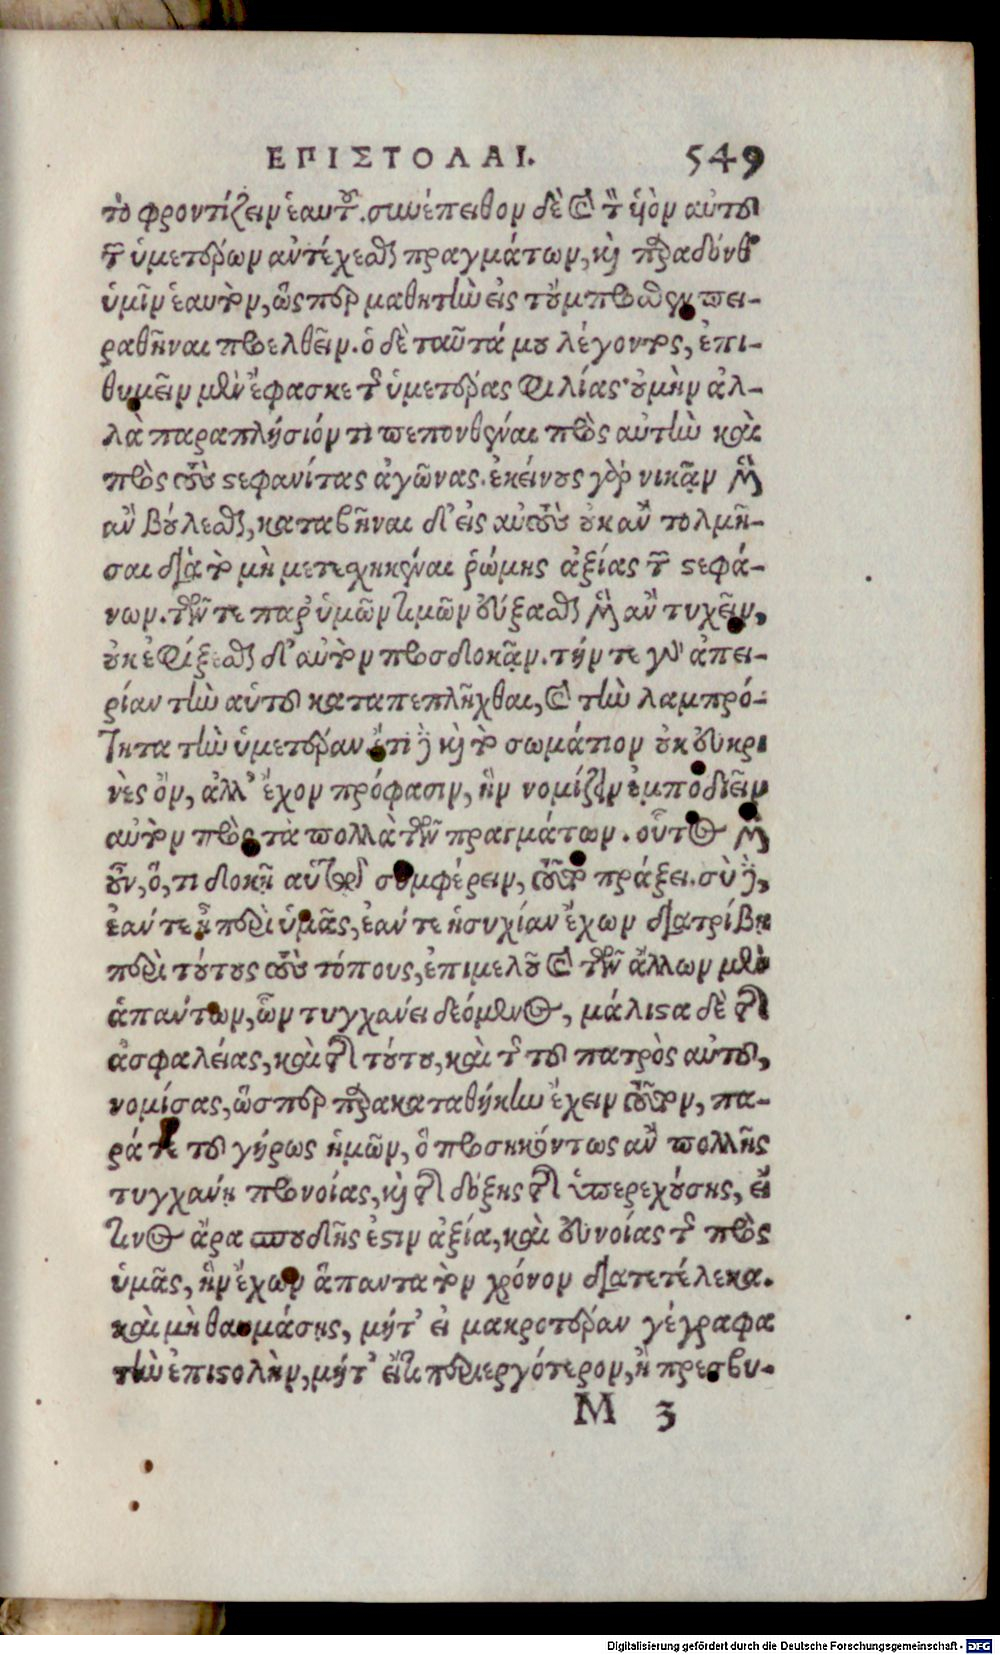 ΕΠΙΣΤΟΛΑΙ. 549
τὸ φροντίζειν ἑαυτοῦ. συνέπειθον δὲ καὶ τὸν υἱὸν αὐτοῦ
τῶν ὑμετέρων ἀντέχεσθαι πραγμάτων, καὶ παραδόνθ'
ὑμῖν ἑαυτὸν, ὥσπερ μαθητὴν εἰς τοὔμπροσθεν πει-
ραθῆναι προελθεῖν. ὁ δὲ ταῦτά μου λέγοντος, ἐπι-
θυμεῖν μὲν ἔφασκε τῆς ὑμετέρας φιλίας· οὐ μὴν ἀλ-
λὰ παραπλήσιόν τι πεπονθέναι πρὸς αὐτὴν καὶ
πρὸς τοὺς στεφανίτας ἀγῶνας. ἐκείνους γὰρ νικᾷν μὲν
ἂν βούλεσθαι, καταβῆναι δ' εἰς αὐτοὺς οὐκ ἂν τολμῆ-
σαι διὰ τὸ μὴ μετεσχηκέναι ῥώμης ἀξίας τῶν στεφά-
νων. τῶν τε παρ' ὑμῶν τιμῶν εὔξασθαι μὲν ἂν τυχεῖν,
οὐκ ἐφίξεσθαι δ' αὐτὸν προσδοκᾷν. τήν τε γὰρ ἀπει-
ρίαν τὴν αὑτοῦ καταπεπλῆχθαι, καὶ τὴν λαμπρό-
τητα τὴν ὑμετέραν. ἔτι δὲ καὶ τὸ σωμάτιον οὐκ εὐκρι
νὲς ὂν, ἀλλ' ἔχον πρόφασιν, ἣν νομίζειν ἐμποδιεῖν
αὐτὸν πρὸς τὰ πολλὰ τῶν πραγμάτων. οὗτος μὲν
οὖν, ὅ, τι δοκῇ αὐτῷ συμφέρειν, τοῦτο πράξει. σὺ δὲ,
ἐάν τε ᾖ περὶ ὑμᾶς, ἐάν τε ἡσυχίαν ἔχων διατρίβῃ
περὶ τούτους τοὺς τόπους, ἐπιμελοῦ καὶ τῶν ἄλλων μὲν
ἁπάντων, ὧν τυγχάνει δεόμενος, μάλιστα δὲ τῆς
ἀσφαλείας, καὶ τῆς τούτου, καὶ τῆς τοῦ πατρὸς αὐτοῦ,
νομίσας, ὥσπερ παρακαταθήκην ἔχειν τοῦτον, πα-
ρά τε τοῦ γήρως ἡμῶν, ὃ προσηκόντως ἂν πολλῆς
τυγχάνῃ προνοίας, καὶ τῆς δόξης τῆς ὑπερεχούσης, εἴ
τινος ἄρα σπουδῆς ἐστιν ἀξία, καὶ εὐνοίας τῆς πρὸς
ὑμᾶς, ἣν ἔχων ἅπαντα τὸν χρόνον διατετέλεκα.
καὶ μὴ θαυμάσῃς, μήτ' εἰ μακροτέραν γέγραφα
τὴν ἐπιστολὴν, μήτ' εἴ τι περιεργότερον, ἢ πρεσβυ-
M 3
Digitalisierung gefördert durch die Deutsche Forschungsgemeinschaft - DFG